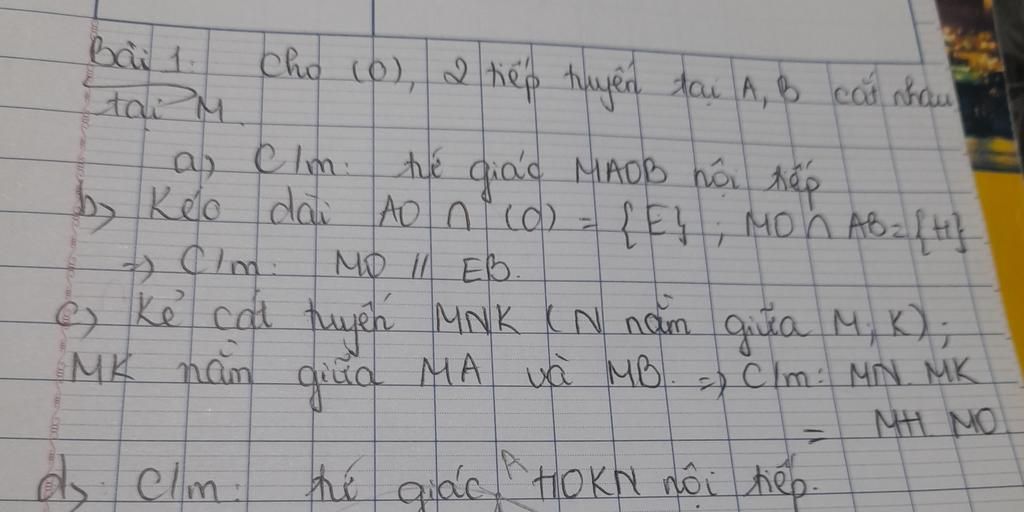 Bài 1. Cho (O), 2 tiếp tuyến tại A, B cắt nhau
tại M.
a) C/m: tứ giác MAOB nội tiếp
b) Kéo dài AO ∩ (O) = {E}; MO ∩ AB = {H}
=> C/m: MO // EB.
c) Kẻ cát tuyến MNK (N nằm giữa M, K);
MK nằm giữa MA và MB. => C/m: MN. MK
= MH MO
d) C/m: tứ giác HOKN nội tiếp.